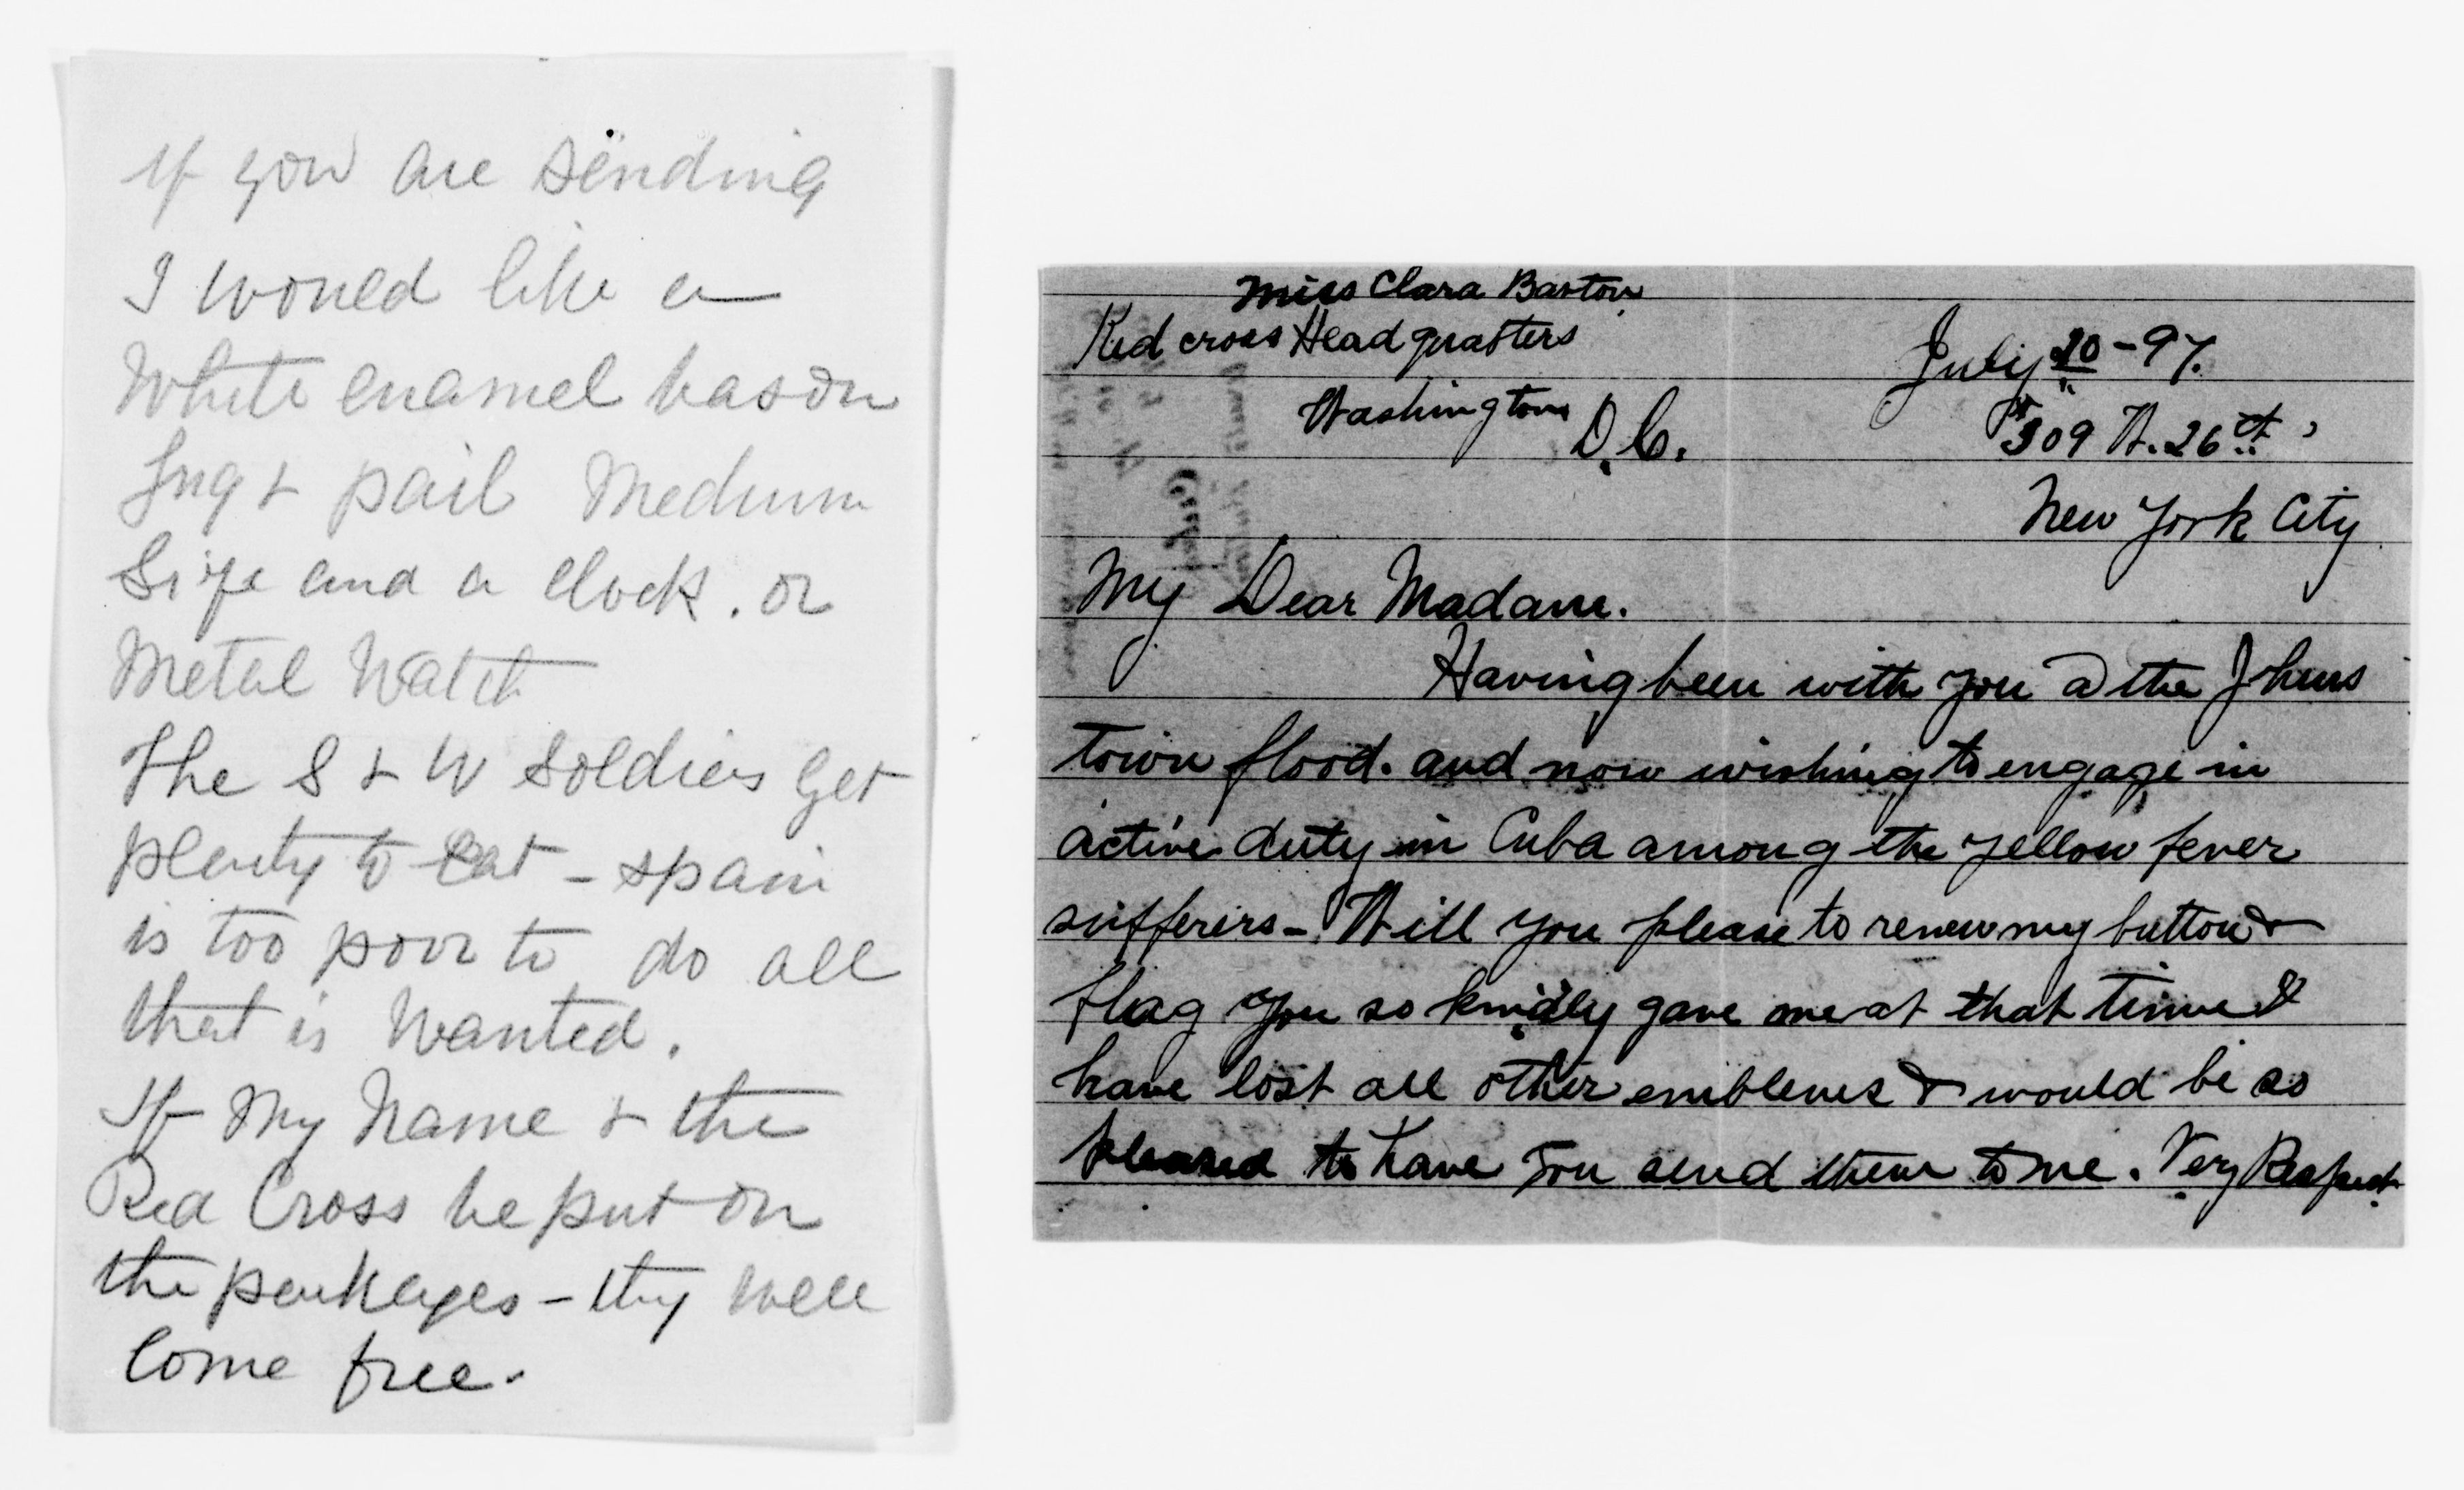 If you are sending
I would like a
White enamel bason
Jug & pail Medium
Size and a clock. or
Metal Watch
The S & W Soldiers get
plenty to eat - Spain
is too poor to do all
that is Wanted.
If My Name & the
Red Cross be put on
the packages - they will
Come free.
Miss Clara Barton
Red cross Headquarters
Washington
D.C.
July 20 - 97.
309 W. 26th
New York City
My Dear Madam.
Having been with you @ the Johns
town flood. and now wishing to engage in
active duty in Cuba among the yellow fever
sufferers - Will you please to renew my button &
flag you so kindly gave me at that time &
have lost all other emblems & would be so
pleased to have you send them to me. Very Respect